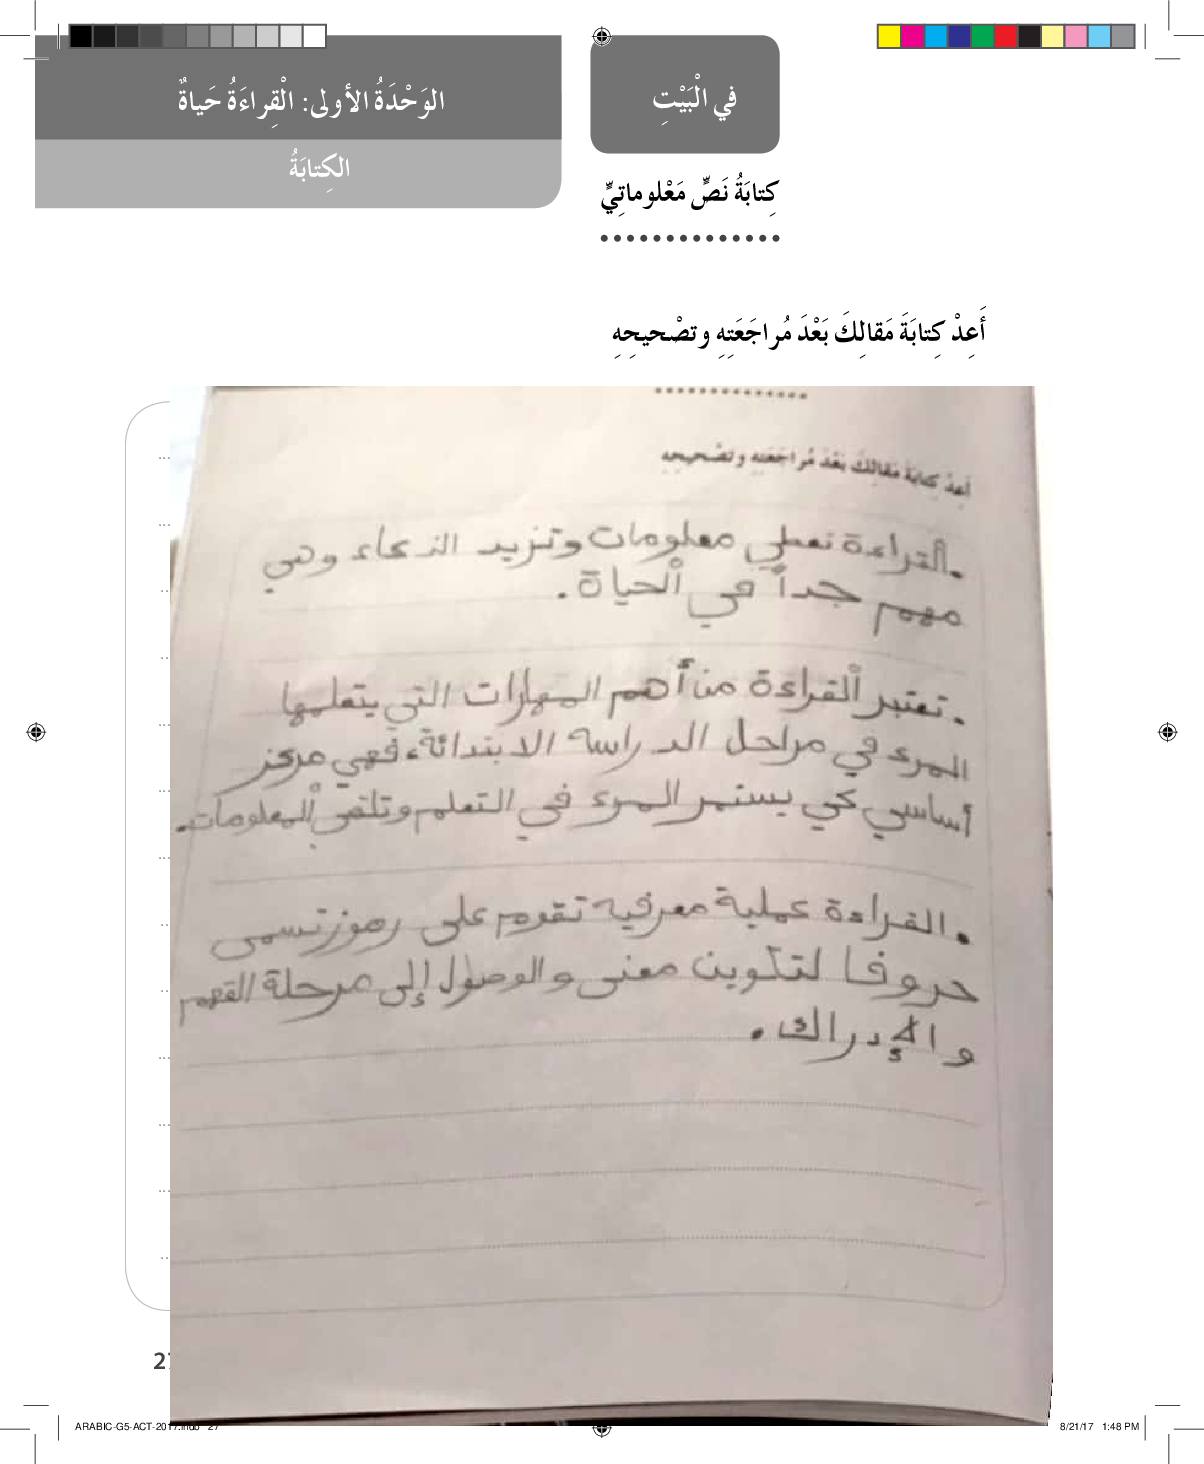 في الْبَيْتِ
الوَحْدَةُ الأولى: الْقِراءَةُ حَياةٌ
الكِتابَةُ
كِتابَةُ نَصٍّ مَعْلوماتِيٍّ
أَعِدْ كِتابَةَ مَقالِكَ بَعْدَ مُراجَعَتِهِ وتصْحيحِهِ
أعِدْ كِتابَةَ مَقالِكَ بَعْدَ مُراجَعَتِهِ وتصْحيحِهِ
. ألقراءة تعطي معلومات وتزيد الذكاء وهي
مهم جداً في ألحياة .
. تعتبر ألقراءة من أهم المهارات التي يتعلمها
المرء في مراحل الدراسه الابتدائة، فهي مركز
أساسي كي يستمر المرء في التعلم وتلقي ألمعلومات.
. القراءة عملية معرفيه تقوم على رموز تسمى
حروفا لتكوين معنى والوصول إلى مرحلة الفهم
والإدراك .
27
ARABIC-G5-ACT-2017.indb 27
8/21/17 1:48 PM